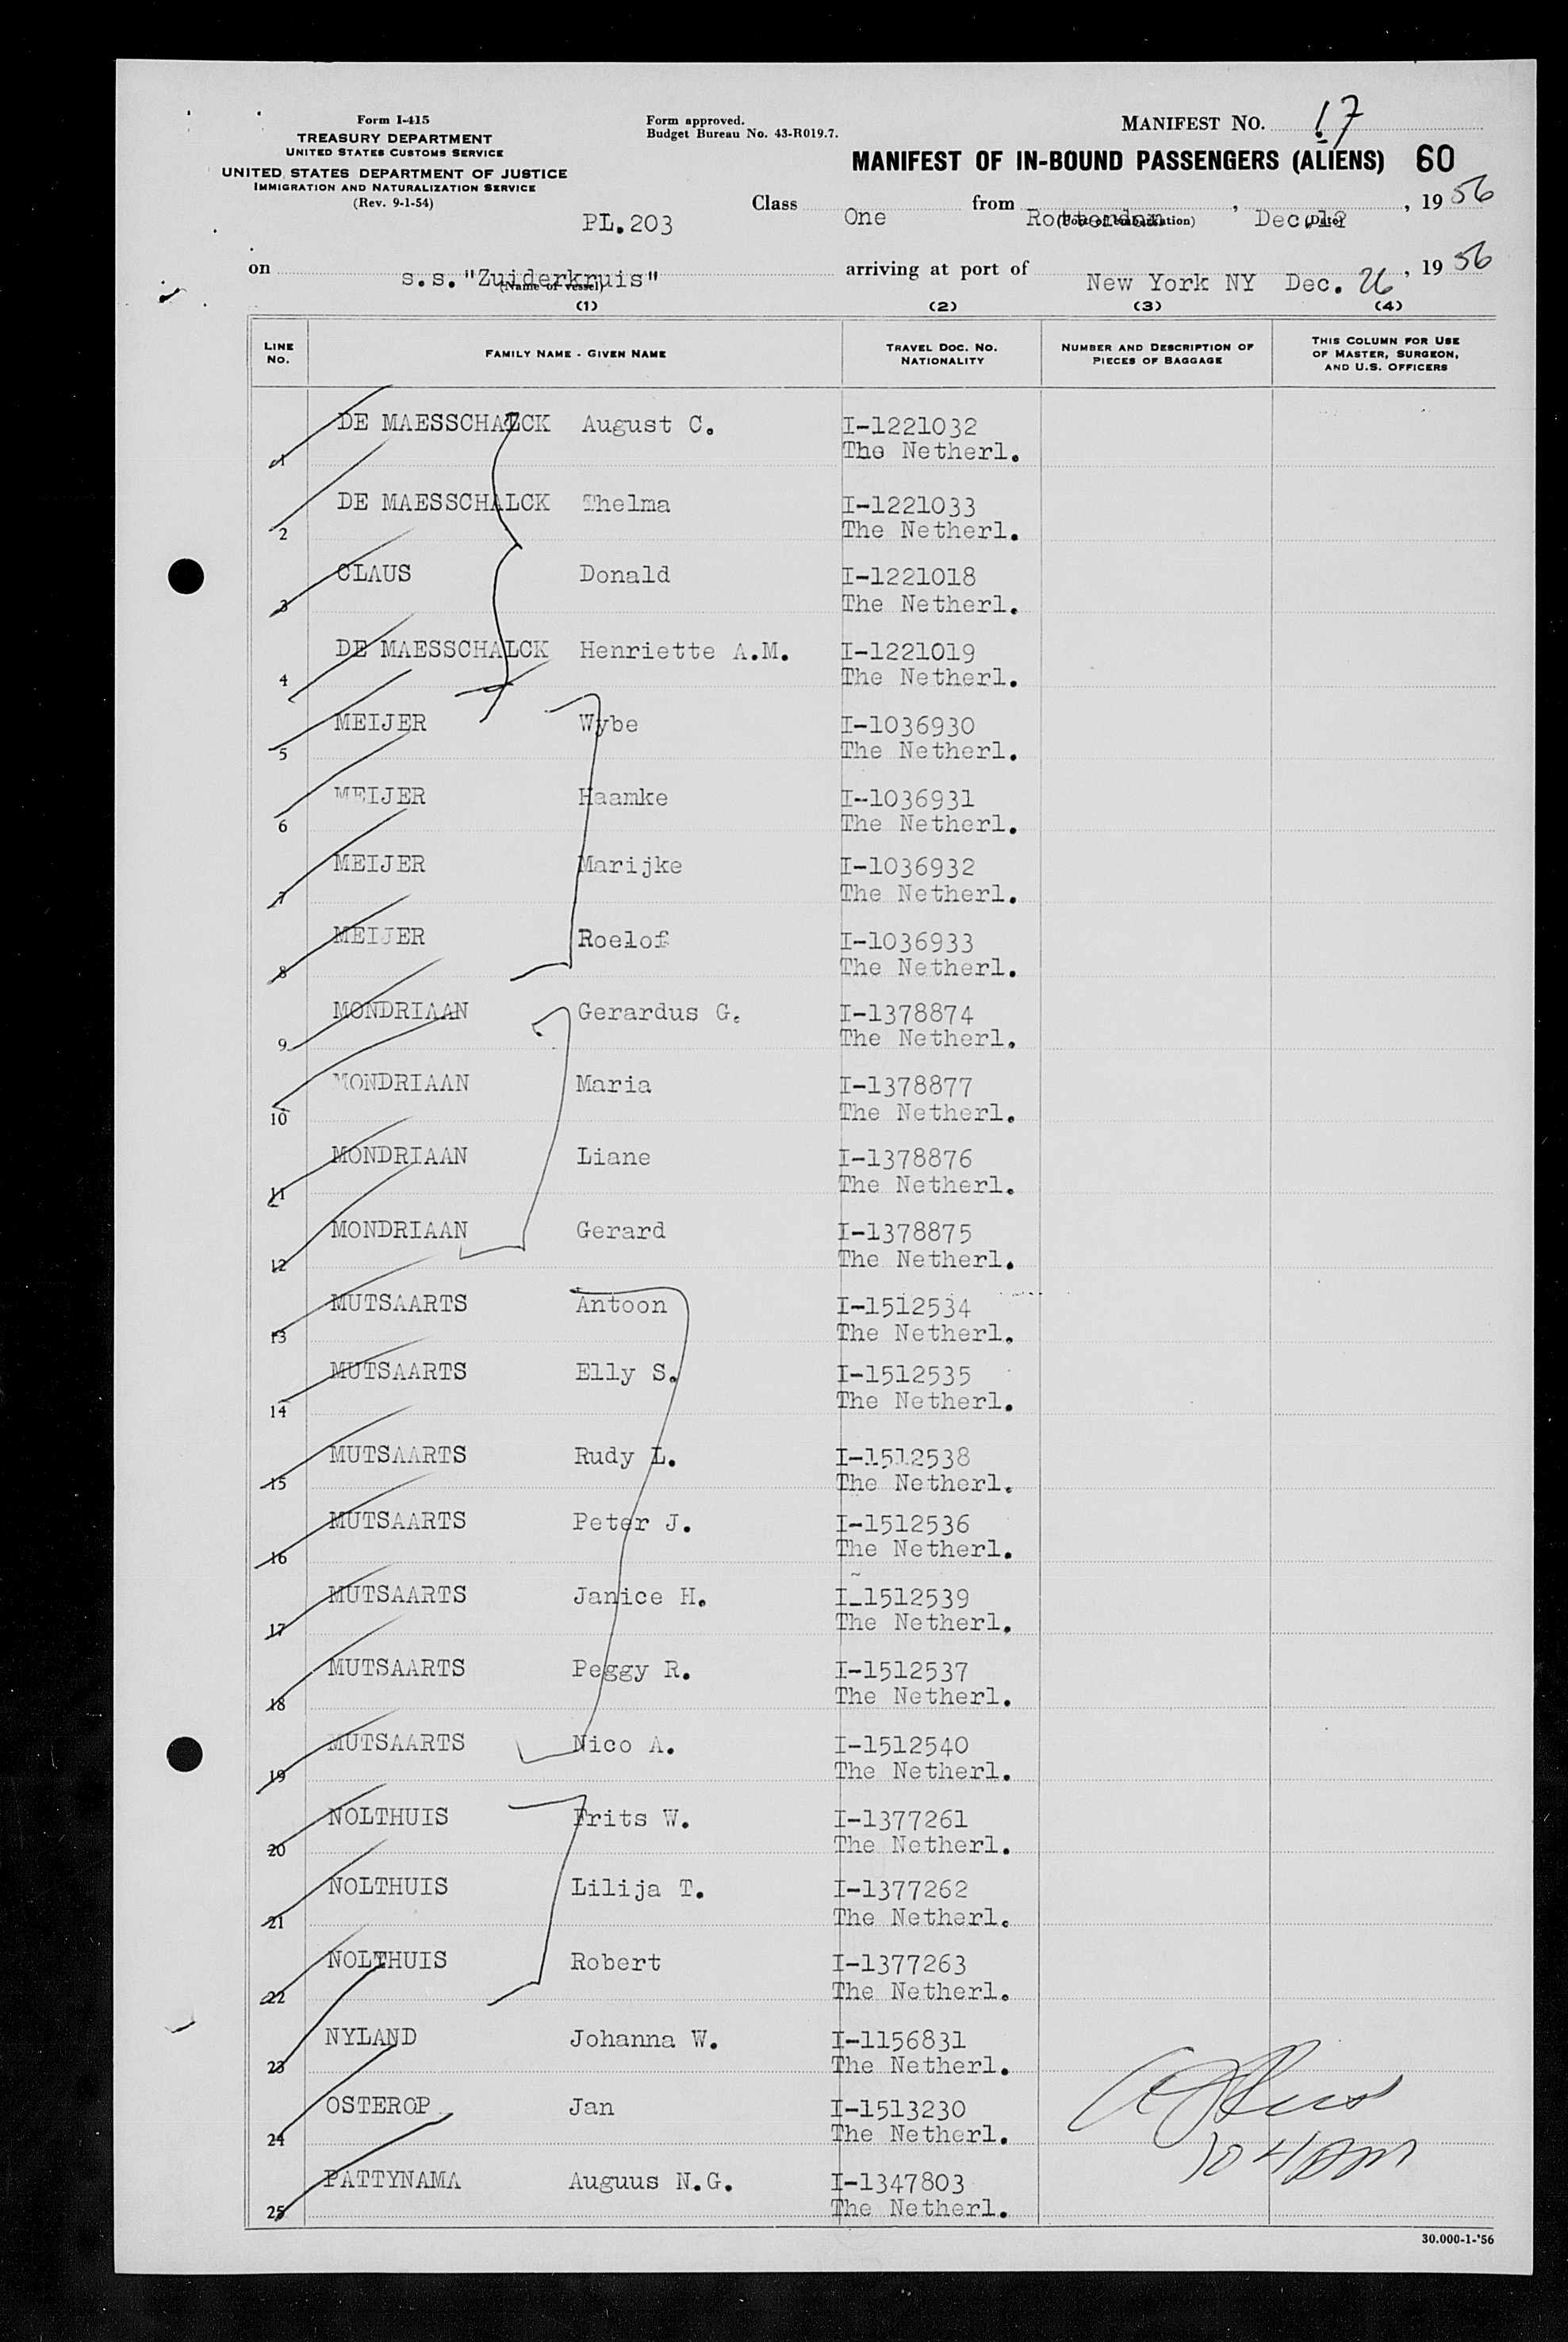 Form I-415
TREASURY DEPARTMENT
UNITED STATES CUSTOMS SERVICE
UNITED STATES DEPARTMENT OF JUSTICE
IMMIGRATION AND NATURALIZATION SERVICE
(Rev. 9-1-54)
Form approved.
Budget Bureau No. 43-R019.7.
MANIFEST NO. 17
MANIFEST OF IN-BOUND PASSENGERS (ALIENS) 60
PL.203
Class One from (Port of embarkation), Dec. (Date), 19 56
on s.s."Zuiderkruis" (Name of vessel) arriving at port of New York NY Dec. 26, 19 56
(1) (2) (3) (4)
LINE NO. FAMILY NAME - GIVEN NAME TRAVEL DOC. NO. NATIONALITY NUMBER AND DESCRIPTION OF PIECES OF BAGGAGE THIS COLUMN FOR USE OF MASTER, SURGEON, AND U.S. OFFICERS
1 DE MAESSCHALCK August C. I-1221032
The Netherl.
2 DE MAESSCHALCK Thelma I-1221033
The Netherl.
3 CLAUS Donald I-1221018
The Netherl.
4 DE MAESSCHALCK Henriette A.M. I-1221019
The Netherl.
5 MEIJER Wybe I-1036930
The Netherl.
6 MEIJER Haamke I-1036931
The Netherl.
7 MEIJER Marijke I-1036932
The Netherl.
8 MEIJER Roelof I-1036933
The Netherl.
9 MONDRIAAN Gerardus G. I-1378874
The Netherl.
10 MONDRIAAN Maria I-1378877
The Netherl.
11 MONDRIAAN Liane I-1378876
The Netherl.
12 MONDRIAAN Gerard I-1378875
The Netherl.
13 MUTSAARTS Antoon I-1512534
The Netherl.
14 MUTSAARTS Elly S. I-1512535
The Netherl.
15 MUTSAARTS Rudy L. I-1512538
The Netherl.
16 MUTSAARTS Peter J. I-1512536
The Netherl.
17 MUTSAARTS Janice H. I_1512539
The Netherl.
18 MUTSAARTS Peggy R. I-1512537
The Netherl.
19 MUTSAARTS Nico A. I-1512540
The Netherl.
20 NOLTHUIS Frits W. I-1377261
The Netherl.
21 NOLTHUIS Lilija T. I-1377262
The Netherl.
22 NOLTHUIS Robert I-1377263
The Netherl.
23 NYLAND Johanna W. I-1156831
The Netherl.
24 OSTEROP Jan I-1513230
The Netherl.
25 PATTYNAMA Auguus N.G. I-1347803
The Netherl.
30.000-1-'56